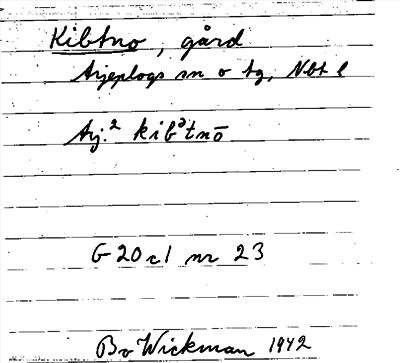 Kibtno, gård
Arjeplogs sn o tg, Nbt l
Arj.² kibᵊtnō
G 20 c1 nr 23
Bo Wickman 1942